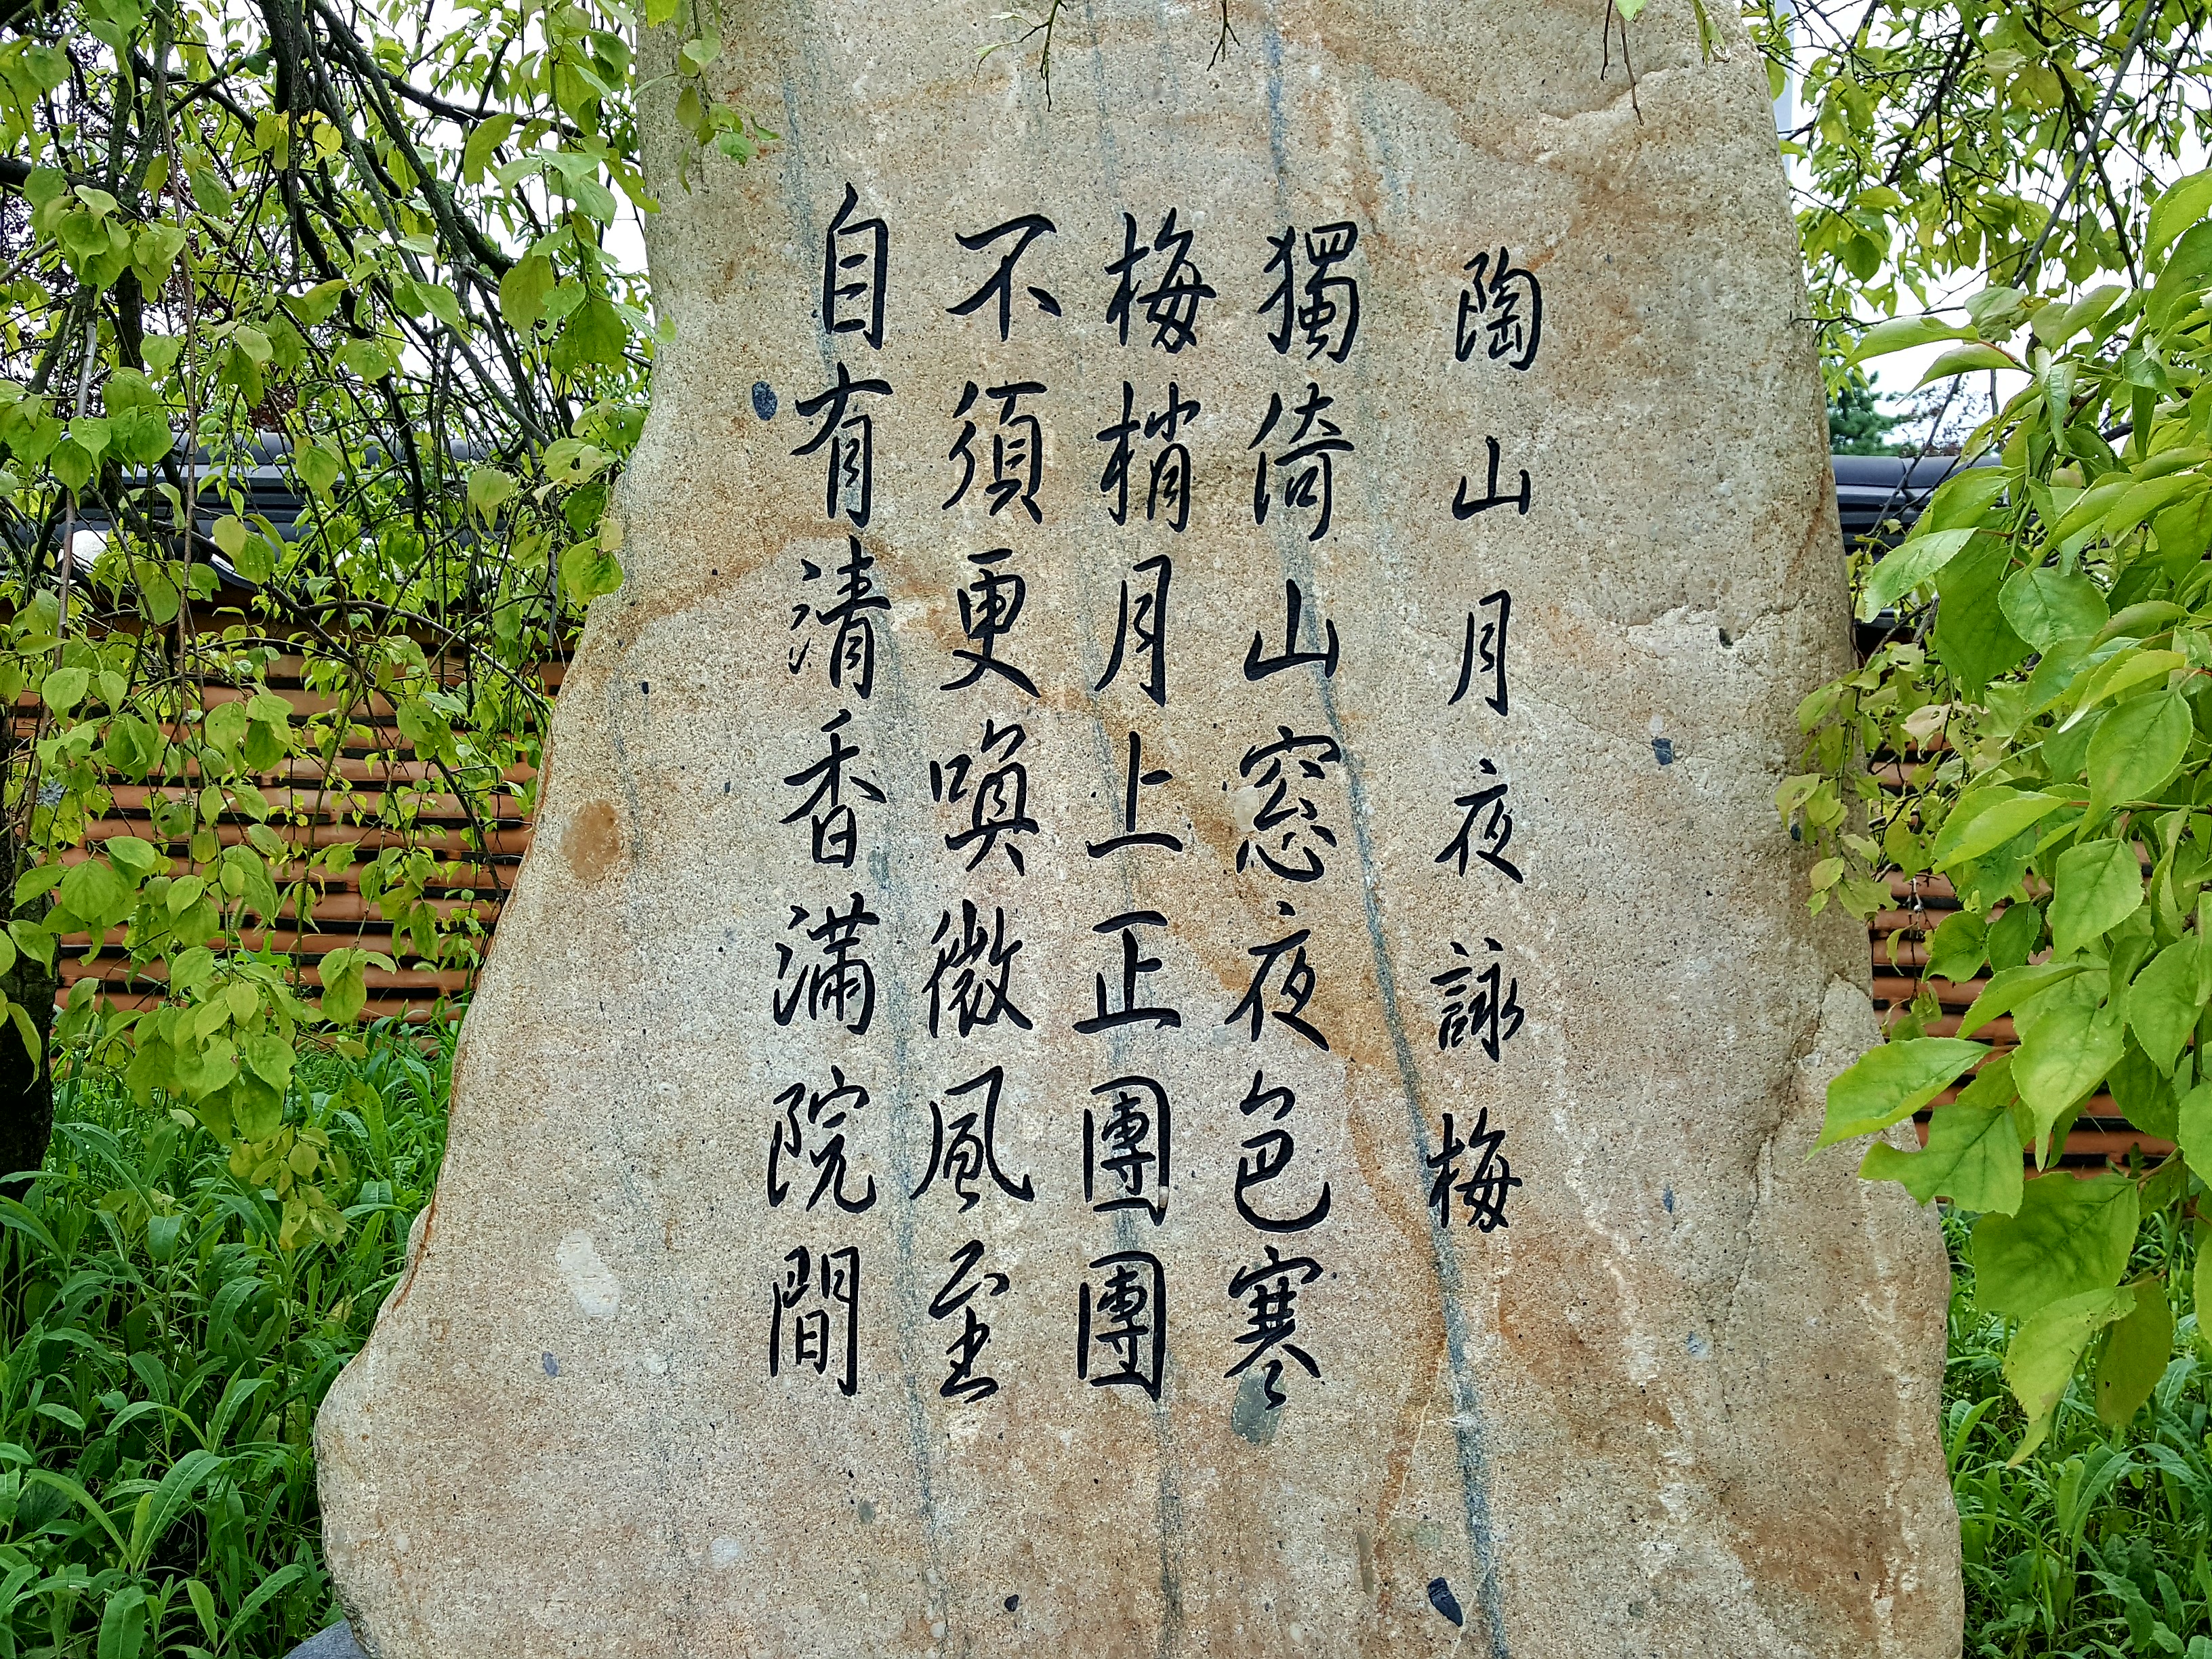 陶山月夜詠梅
獨倚山窓夜色寒
梅梢月上正團團
不須更喚微風至
自有清香滿院間